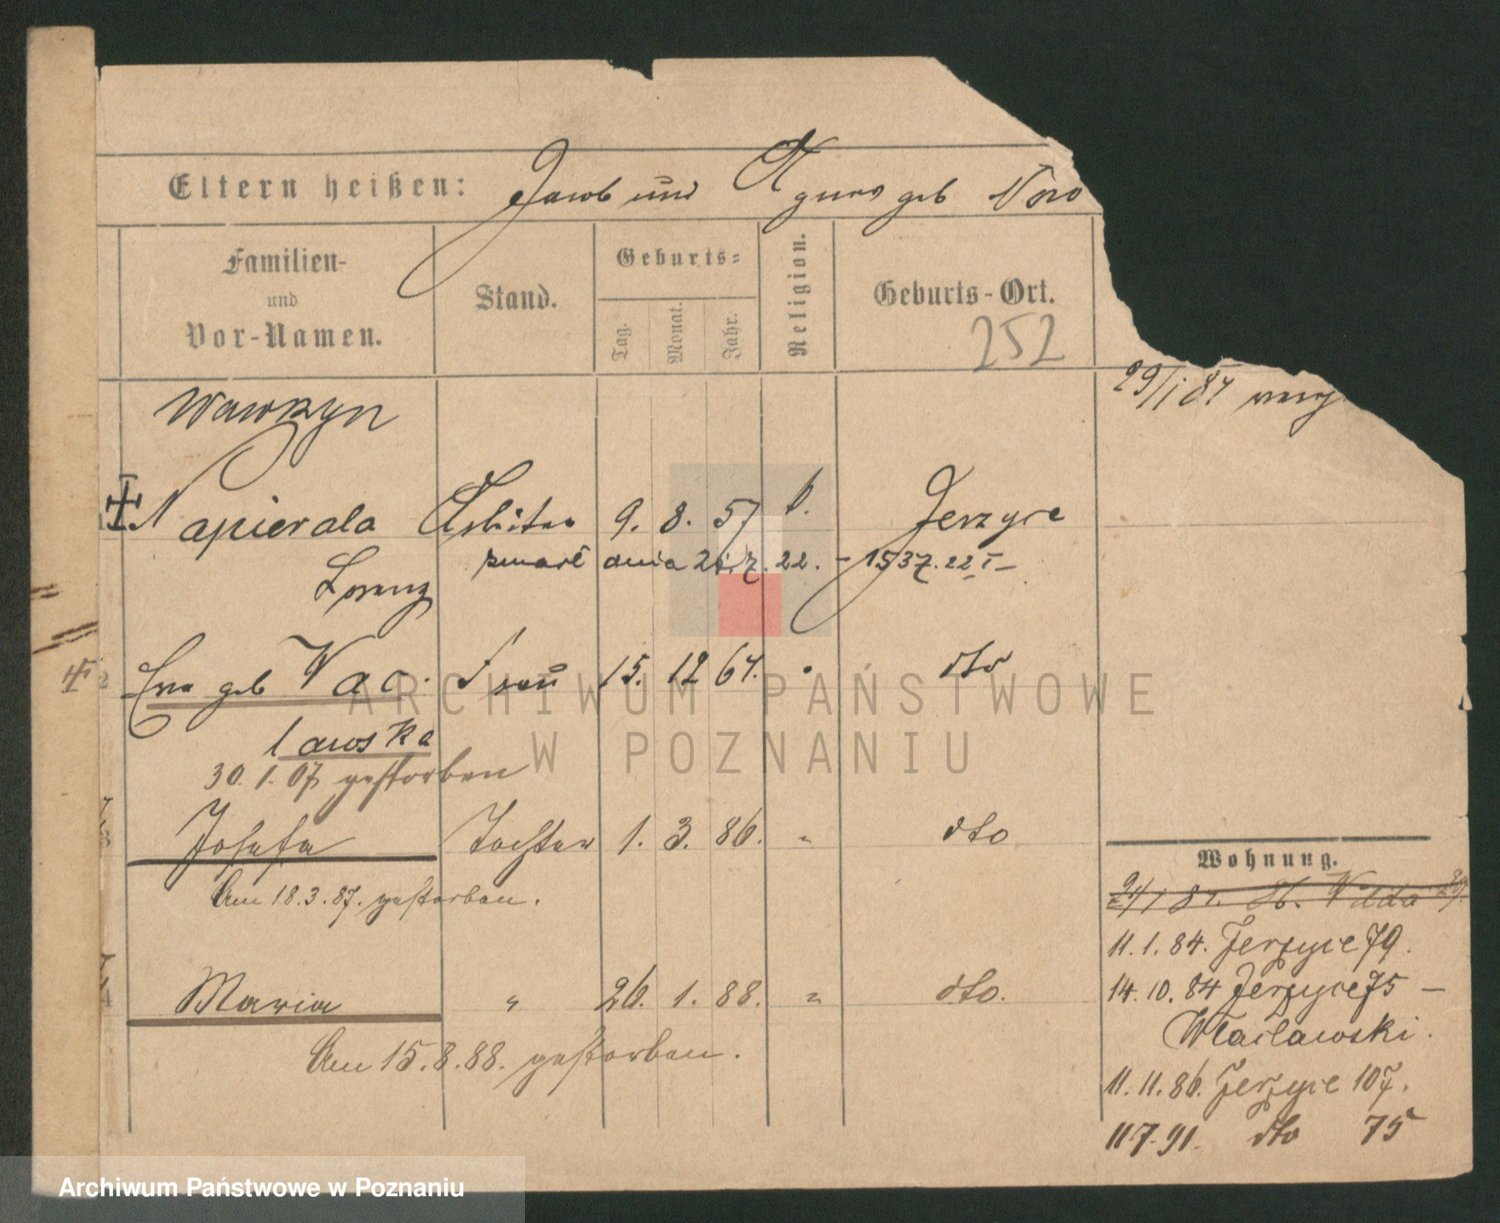 Eltern heißen: Jacob und Agnes geb
Familien-
und
Vor-Namen.
Stand.
Geburts-
Tag.
Monat.
Jahr.
Religion.
Geburts-Ort.
252
29/1 87
Wawrzyn
Napierala Arbeiter 9. 8. 57 k. Jerzyce
Lorenz
zmarł dnia 21.7.22. – 1537.22 I –
Eva geb Wac- Frau 15. 12 64. " dto
lawska
30.1.07 gestorben
Josefa Tochter 1. 3. 86. " dto
Am 18.3.87. gestorben.
Maria " 26. 1. 88. " dto.
Am 15.8.88. gestorben.
Wohnung.
St. Wilda
11.1.84. Jerzyce 79.
14.10.84 Jerzyce 75 –
Waclawski.
11.11.86. Jerzyce 107.
11.7.91. dto 75
ARCHIWUM PAŃSTWOWE
W POZNANIU
Archiwum Państwowe w Poznaniu